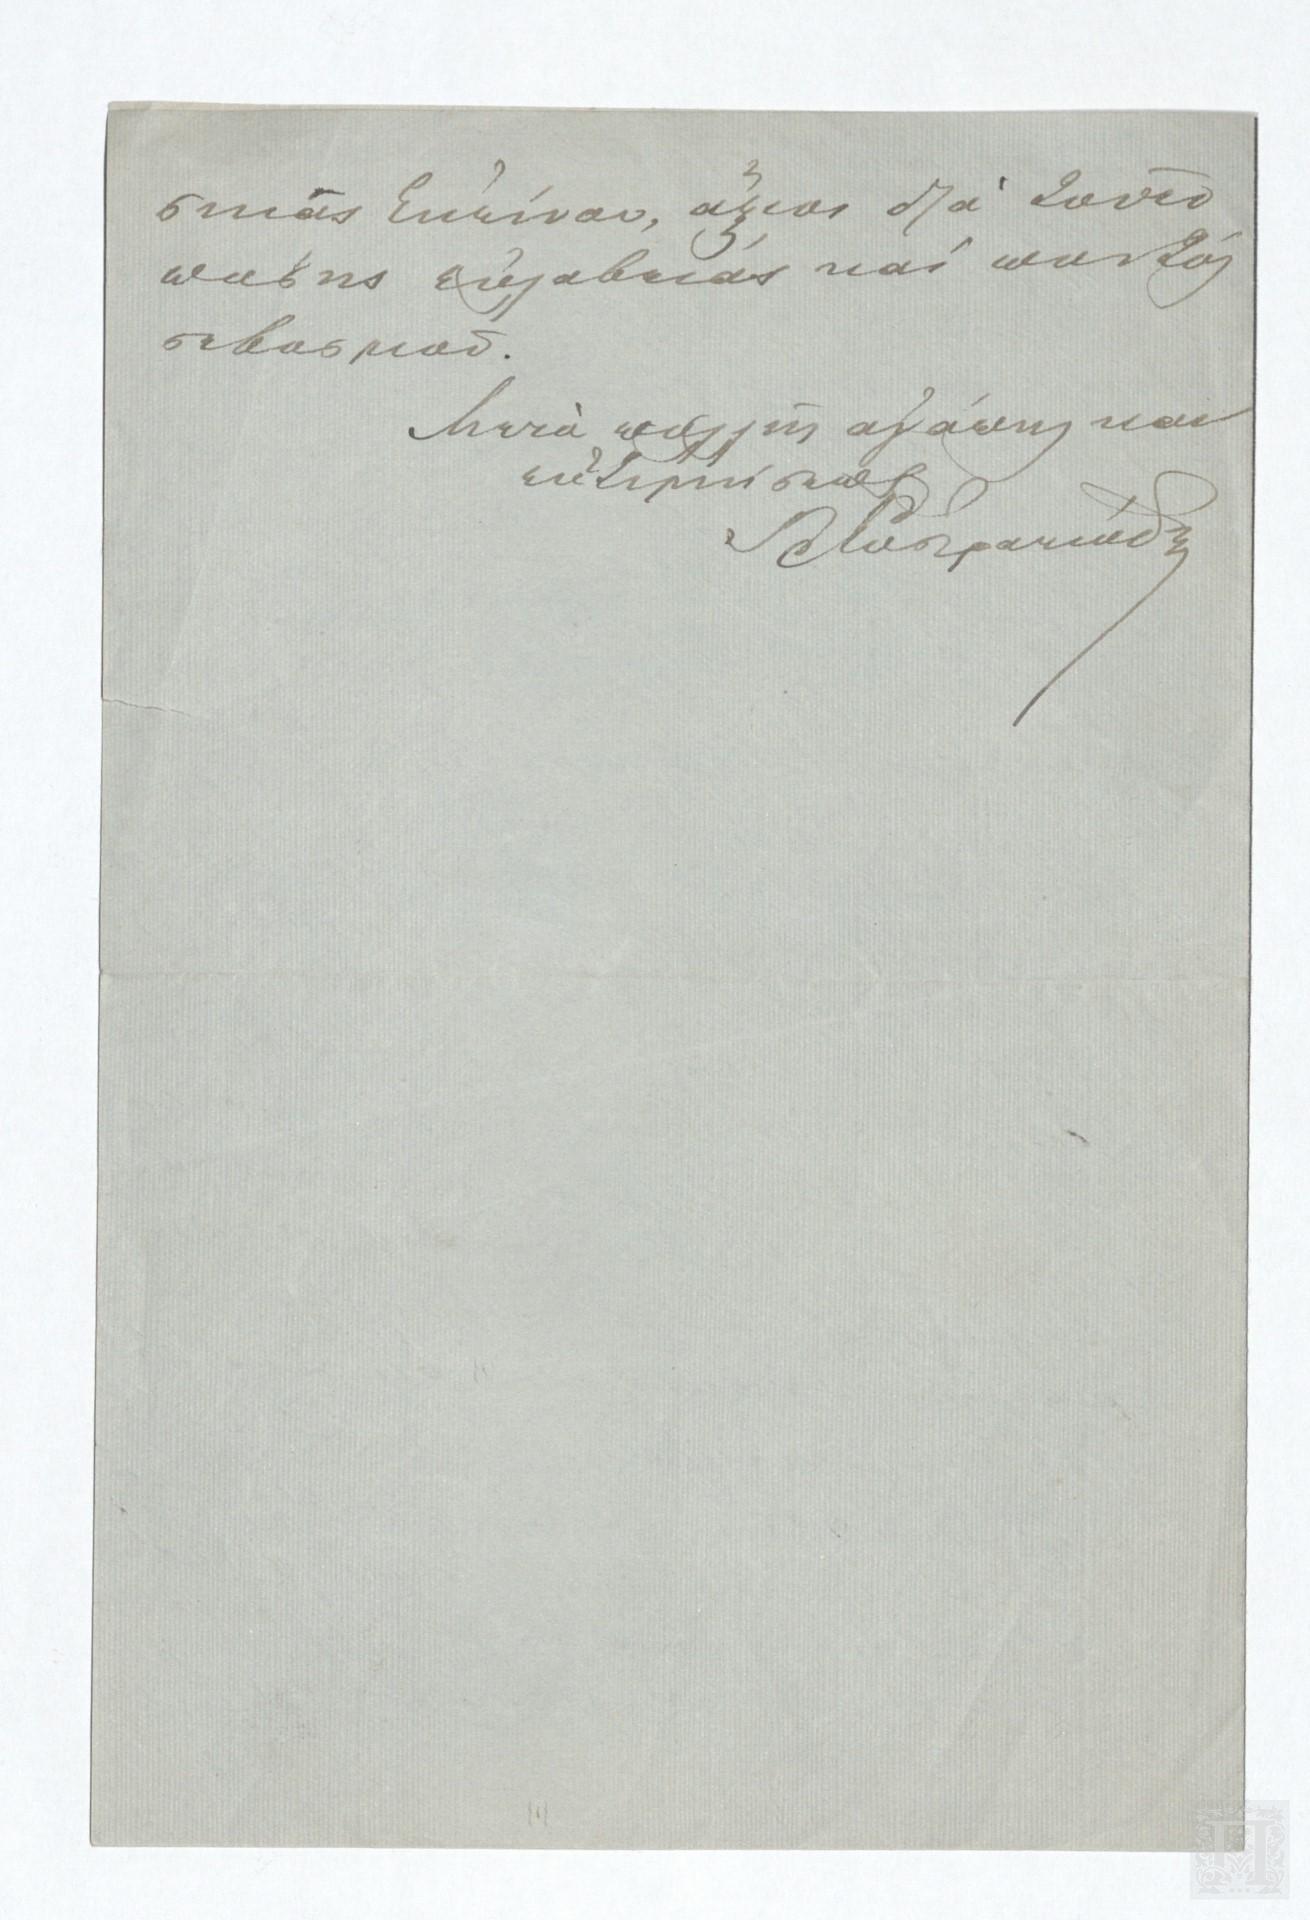 σκιᾶς ἐκείνου, ἄξιος διὰ τοῦτο
πάσης εὐλαβείας καὶ παντὸς
σεβασμοῦ.
Μετὰ πολλῆς ἀγάπης καὶ
ἐκτιμήσεως